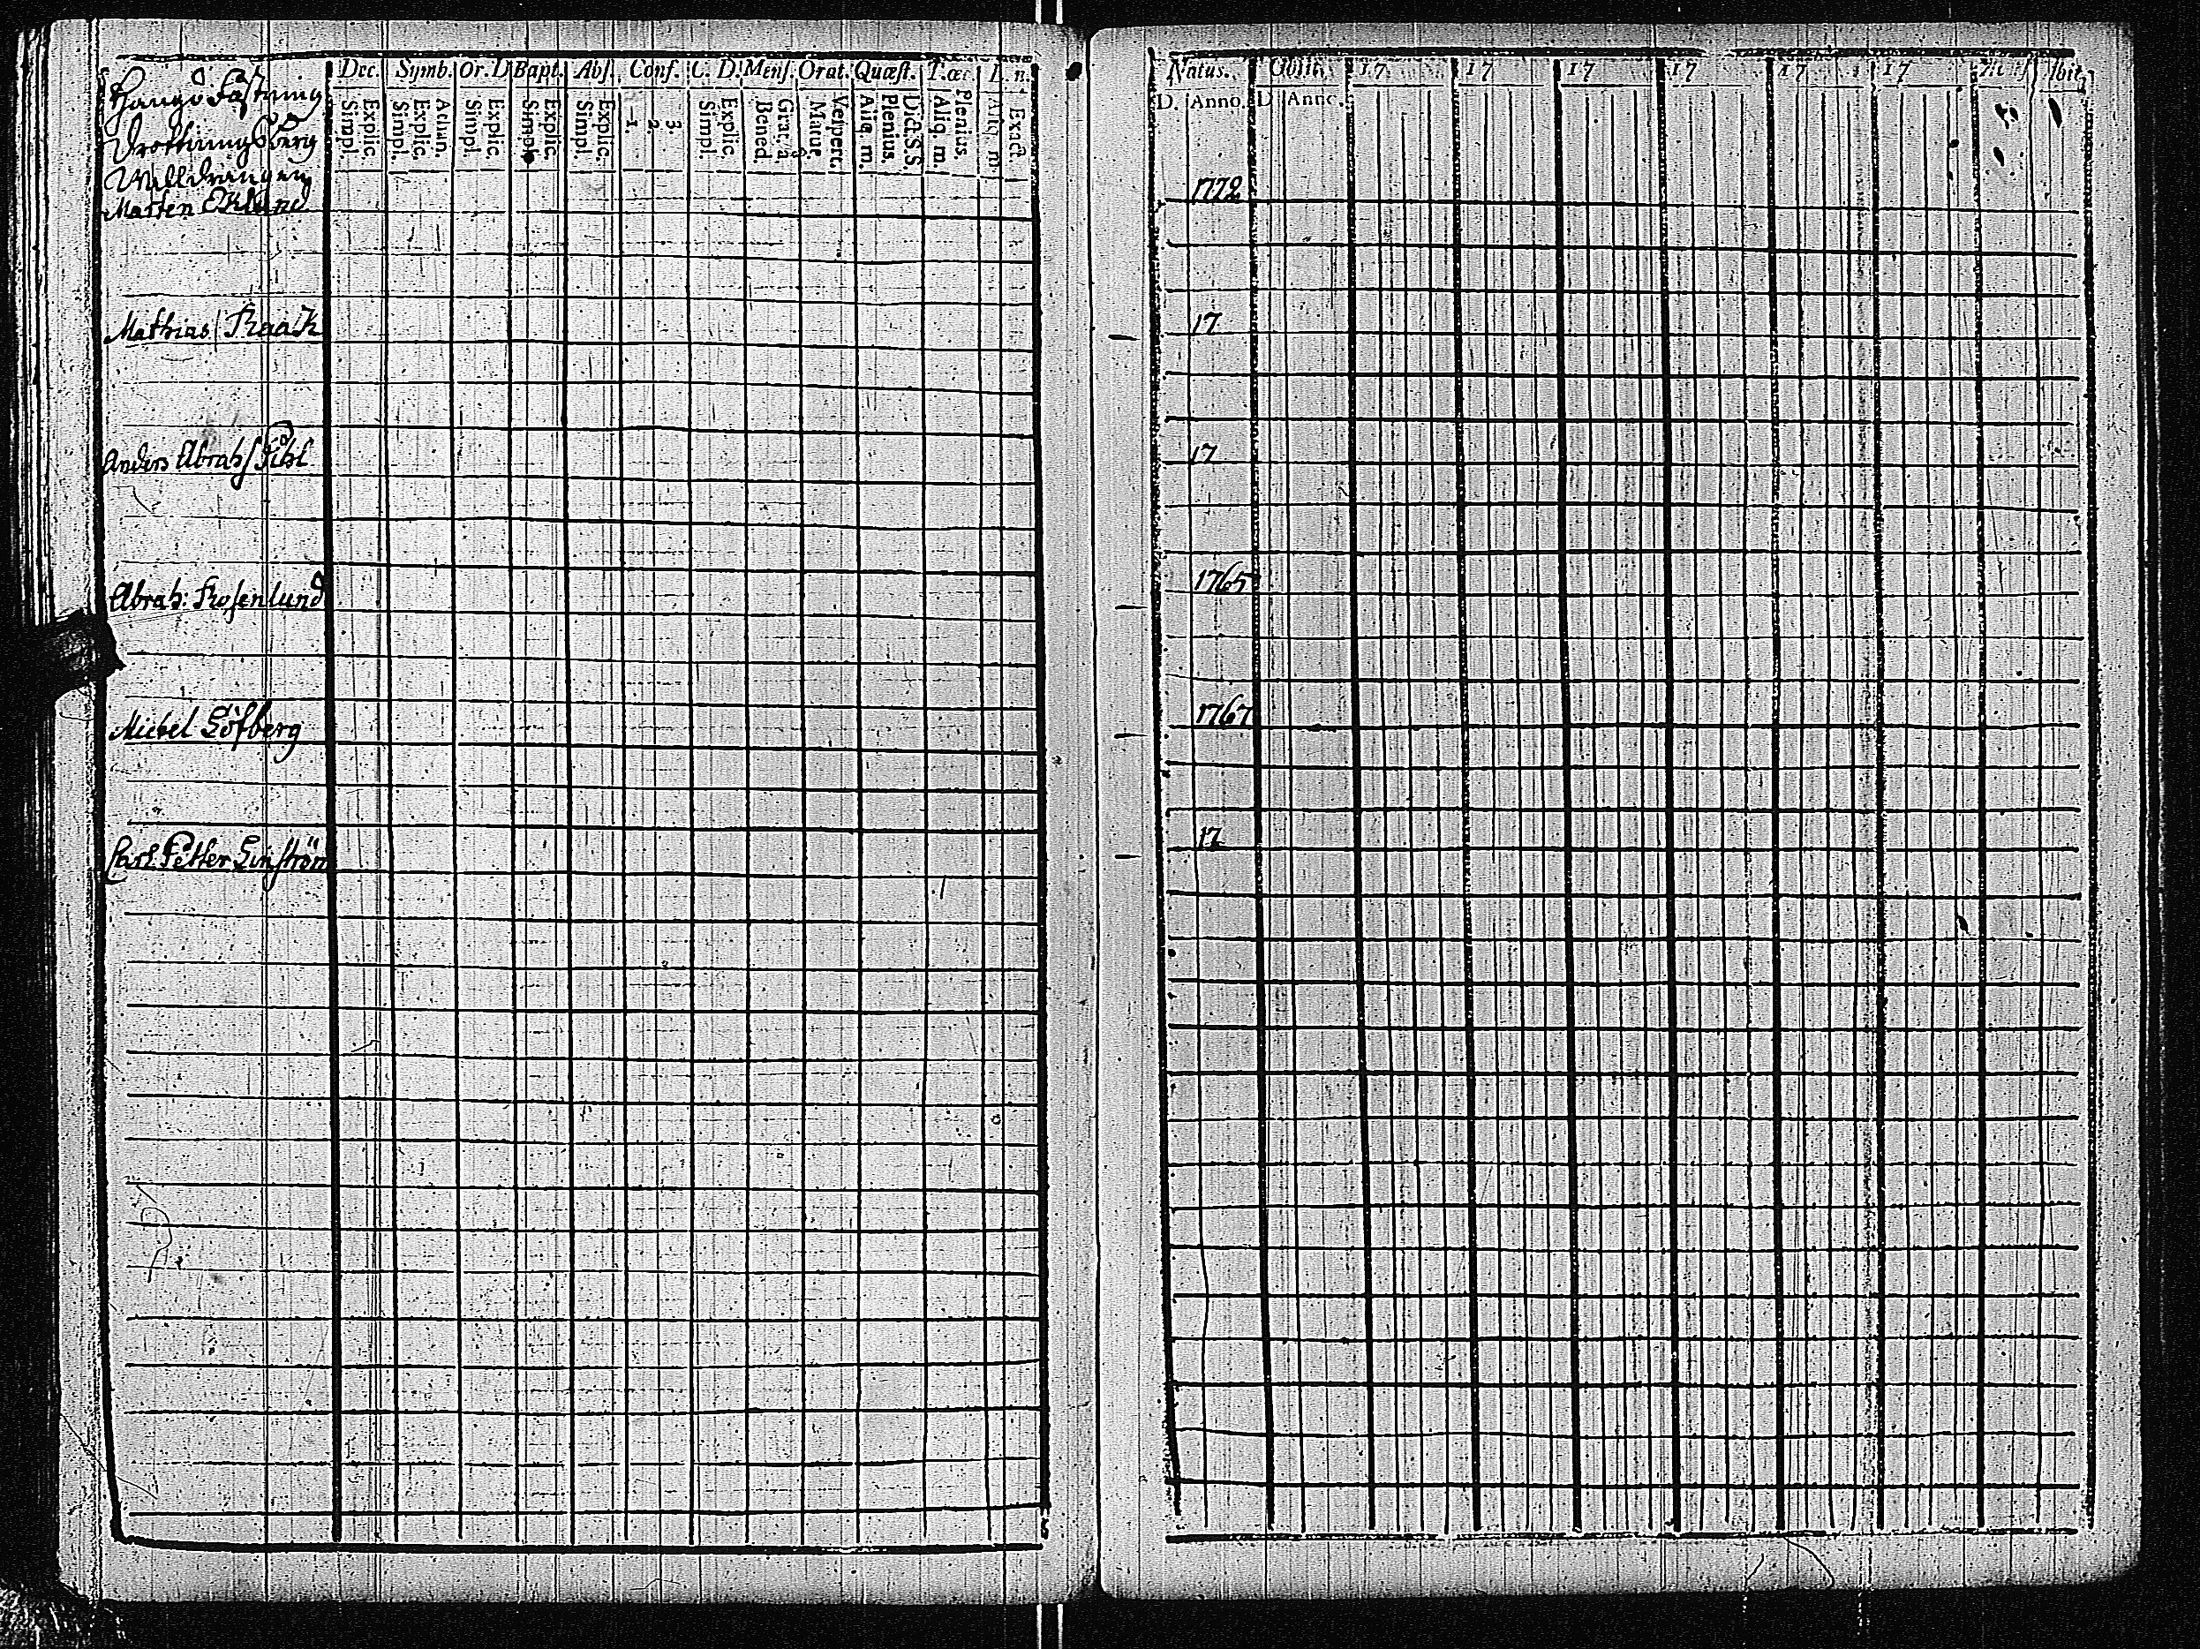 Hangö Fästning
Drottningsberg
Mårten Eklund
Mathias Raack
Anders Abrahs
Abrah: Rosenlund
Michel Löfberg
Carl Petter Linström
Dec. Symb. Or. D Bapt. Abs. Conf. C. D. Mens. Orat. Quæst. T. œc
Explic. Simpl.
Athan. Explic. Simpl.
Explic. Simpl.
Explic. Simpl.
Explic. Simpl.
3. 2. 1.
Explic. Simpl.
Grat. a Bened.
Vespert. Matut.
Dict. S. S. Plenius. Aliq. m.
Plenius. Aliq. m.
Exact. Aliq. m.
Natus. Obiit. 17 17 17 17 17 17
D. Anno. D Anno.
1772
17
17
1765
1767
17